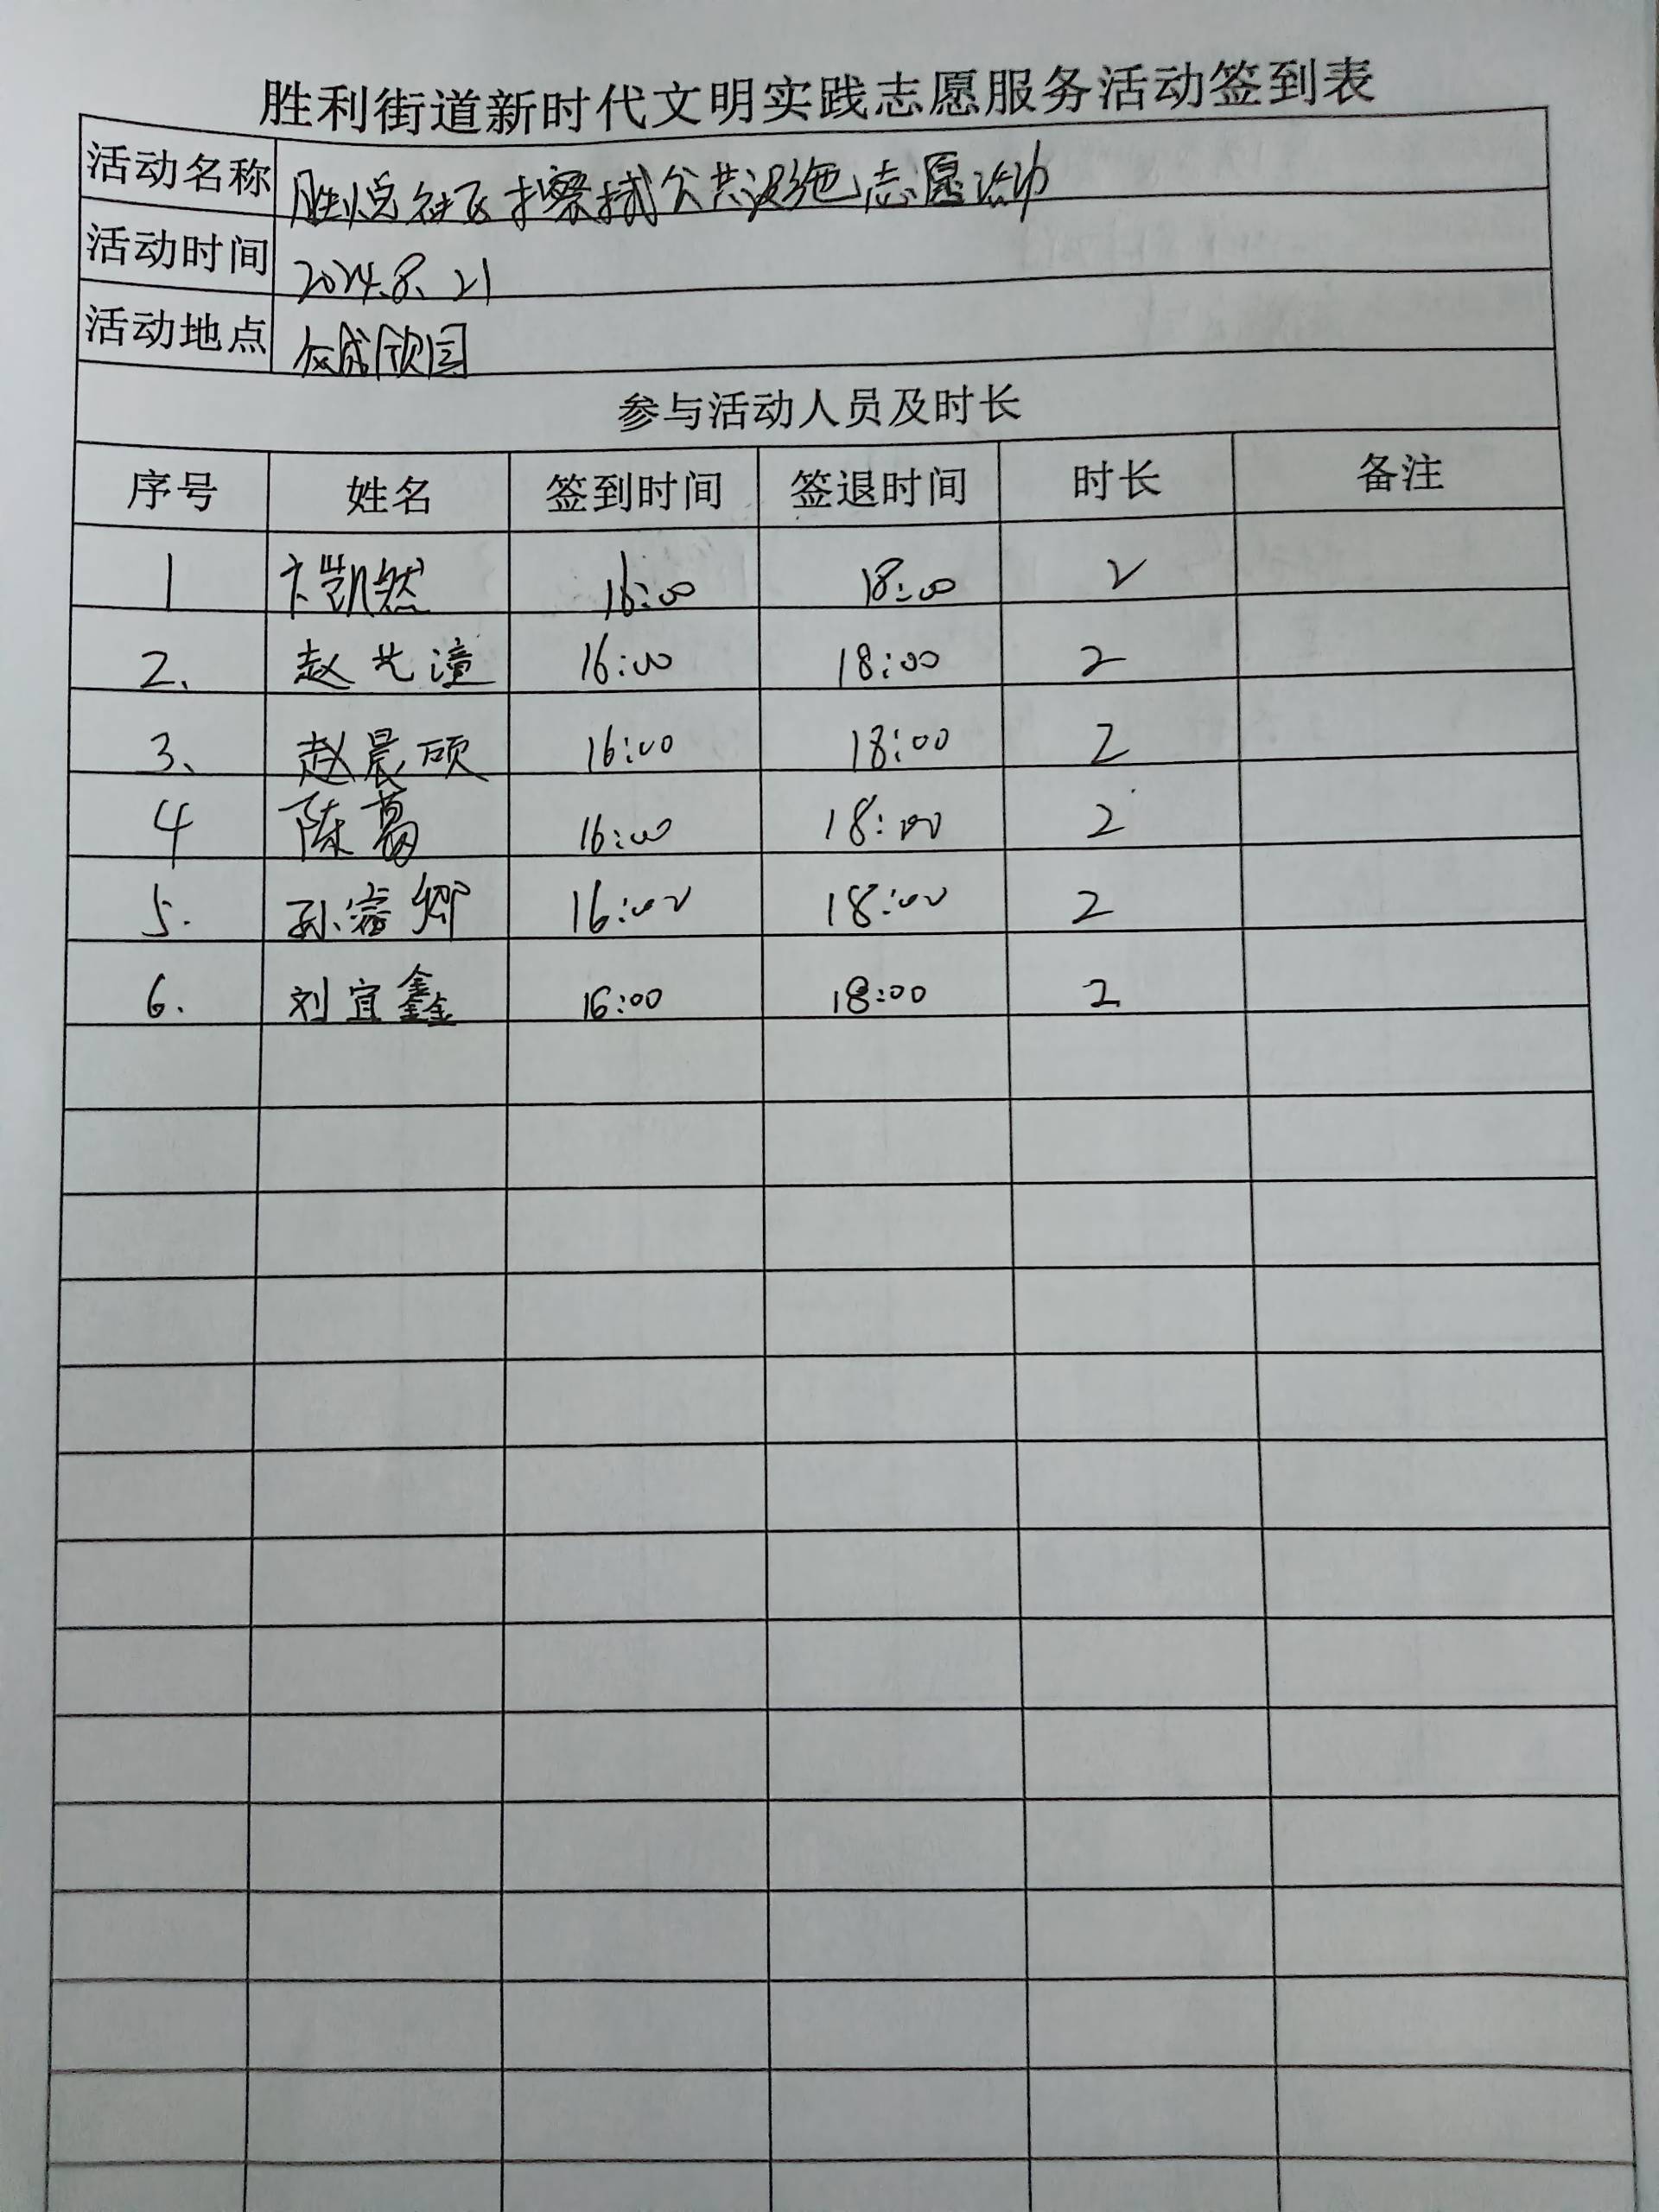 胜利街道新时代文明实践志愿服务活动签到表
活动名称 胜悦社区擦拭公共设施志愿活动
活动时间 2024.8.21
活动地点 欣园
参与活动人员及时长
序号 姓名 签到时间 签退时间 时长 备注
1 卞凯然 16:00 18:00 2
2、 赵艺潼 16:00 18:00 2
3、 赵晨硕 16:00 18:00 2
4 陈葛 16:00 18:00 2
5. 孙睿卿 16:00 18:00 2
6. 刘宜鑫 16:00 18:00 2